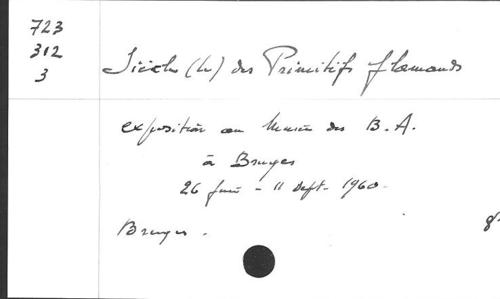 723
312
3
Siècle (Le) des Primitifs flamands
exposition au Musée des B. A.
à Bruges
26 juin - 11 Sept. 1960.
Bruges.
8°